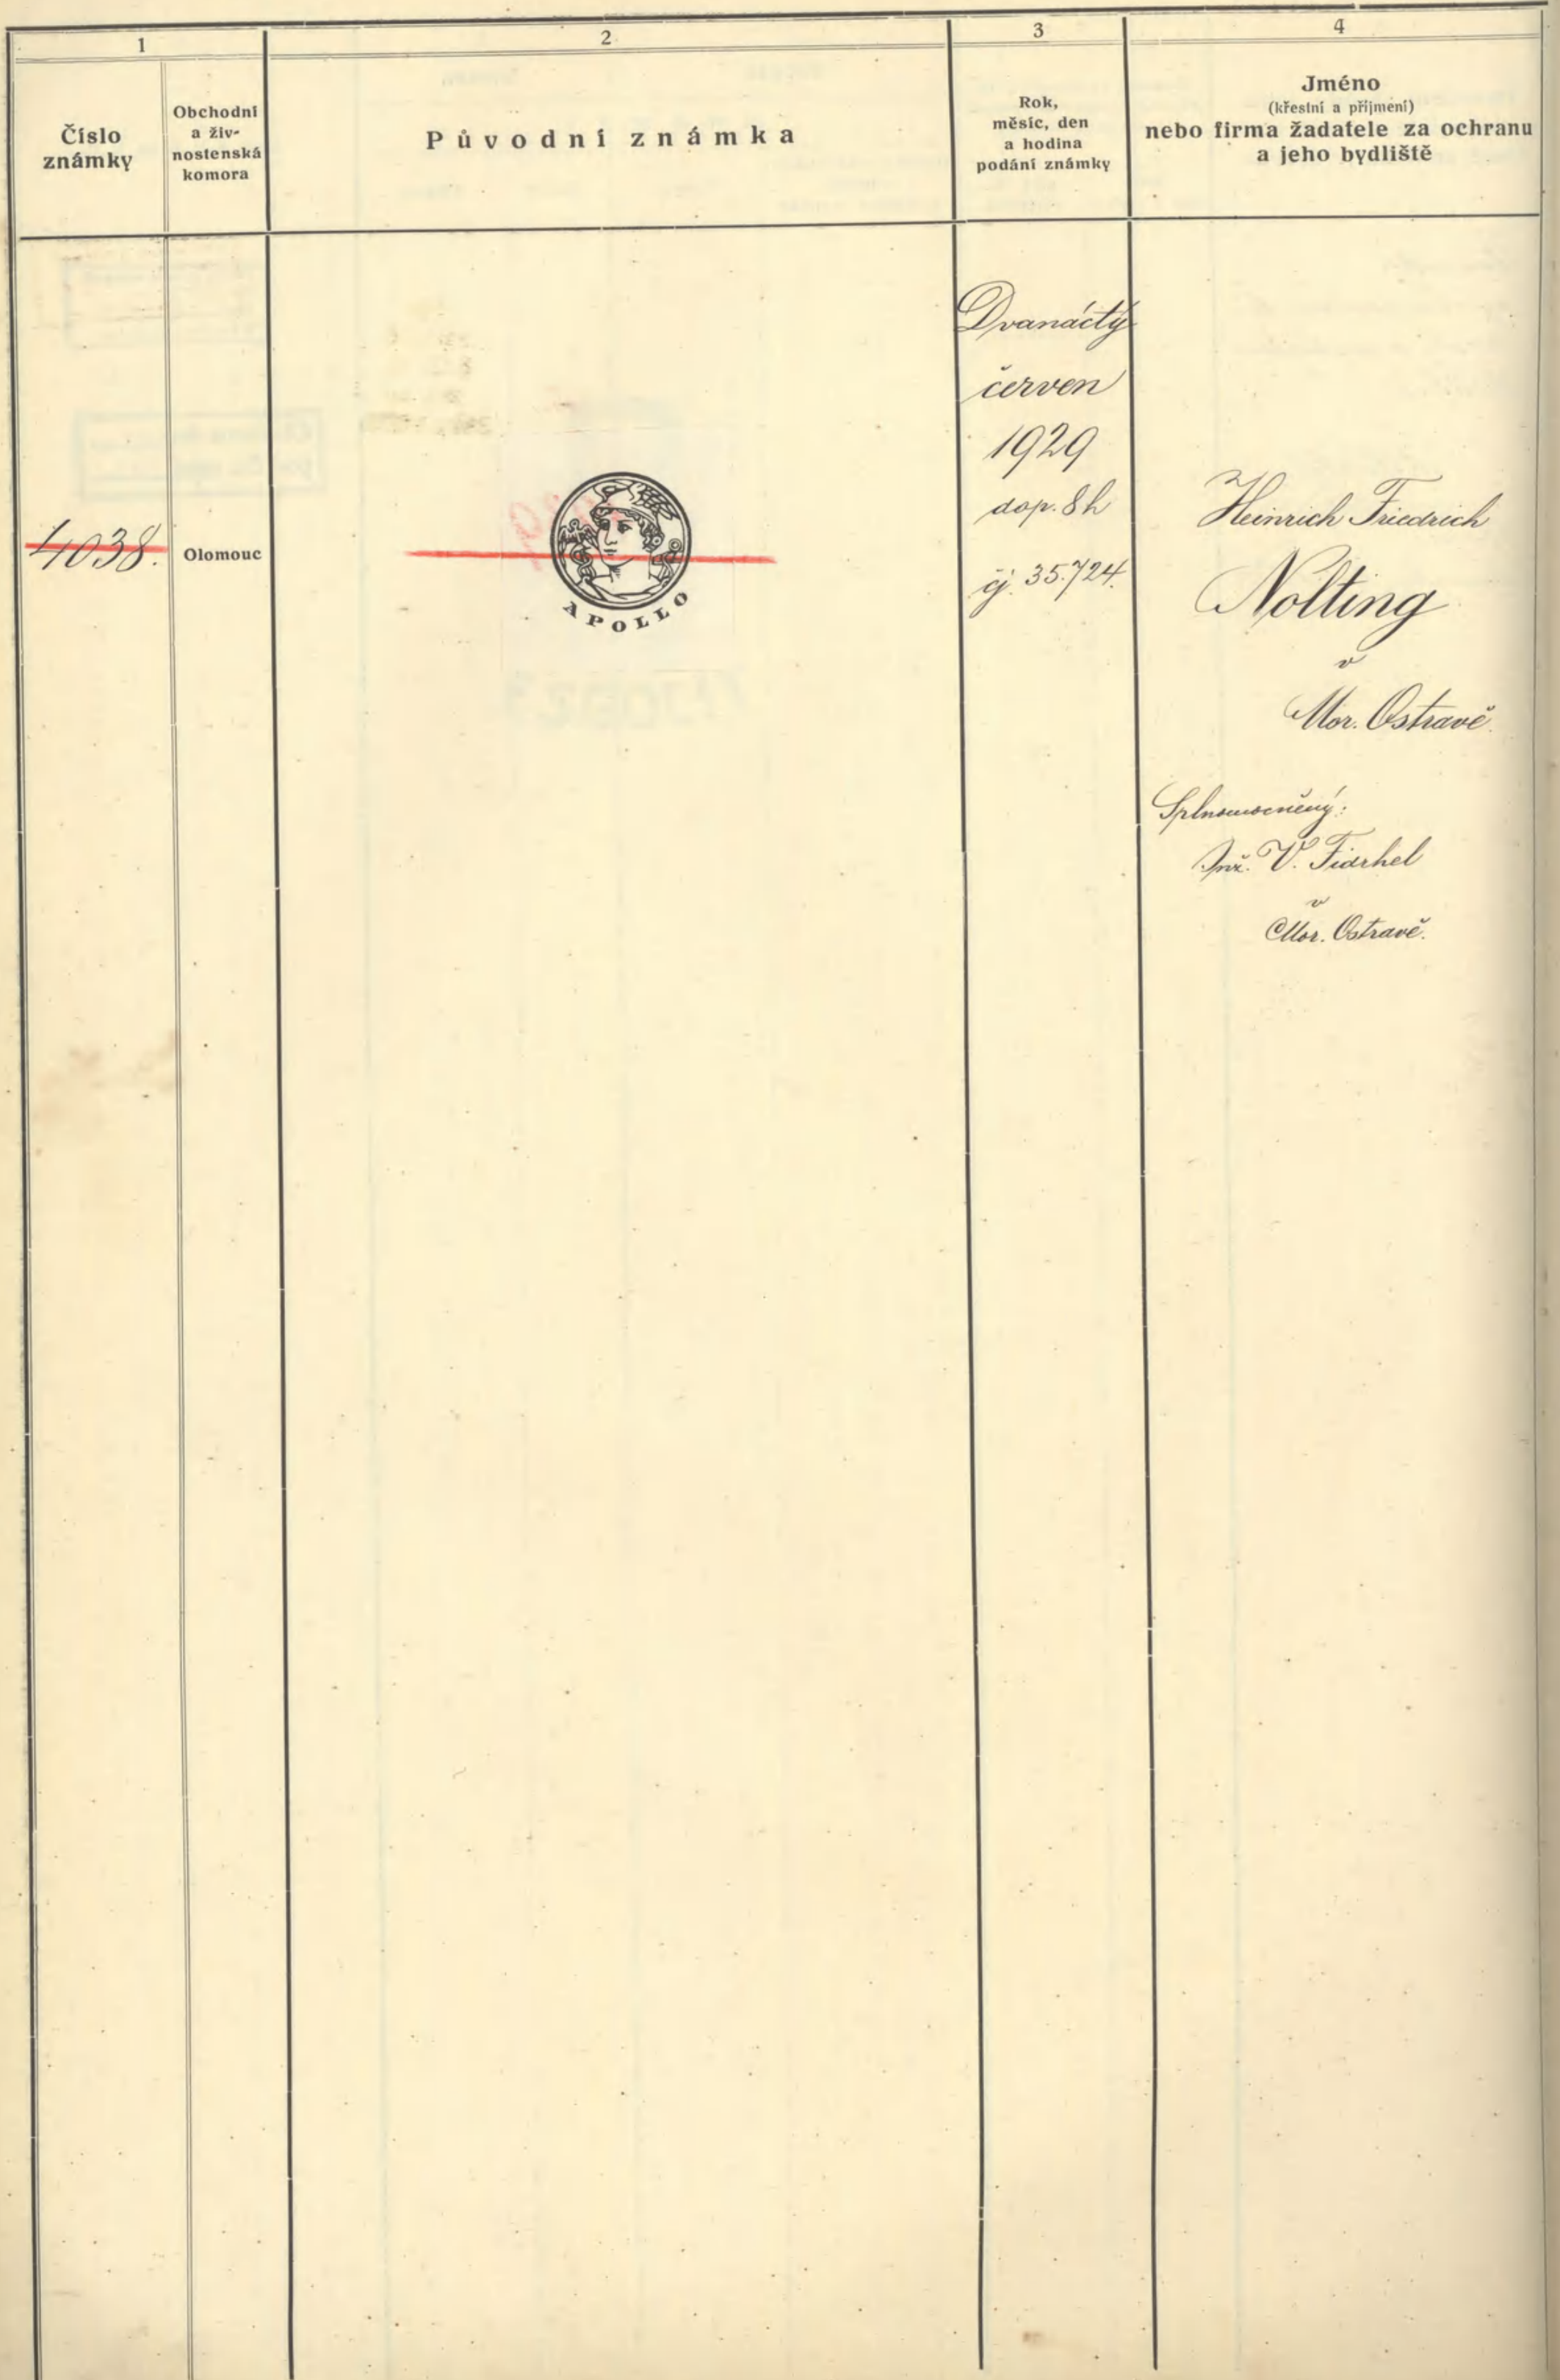 1
2
3
4
Číslo
známky
Obchodní
a živ-
nostenská
komora
Původní známka
Rok,
měsíc, den
a hodina
podání známky
Jméno
(křestní a příjmení)
nebo firma žadatele za ochranu
a jeho bydliště
4038.
Olomouc
APOLLO
Dvanáctý
červen
1929
dop. 8h
čj. 35.724.
Heinrich Friedrich
Nolting
v
Mor. Ostravě.
Splnomocněný:
Inž. V. Fiarhel
v
Mor. Ostravě.